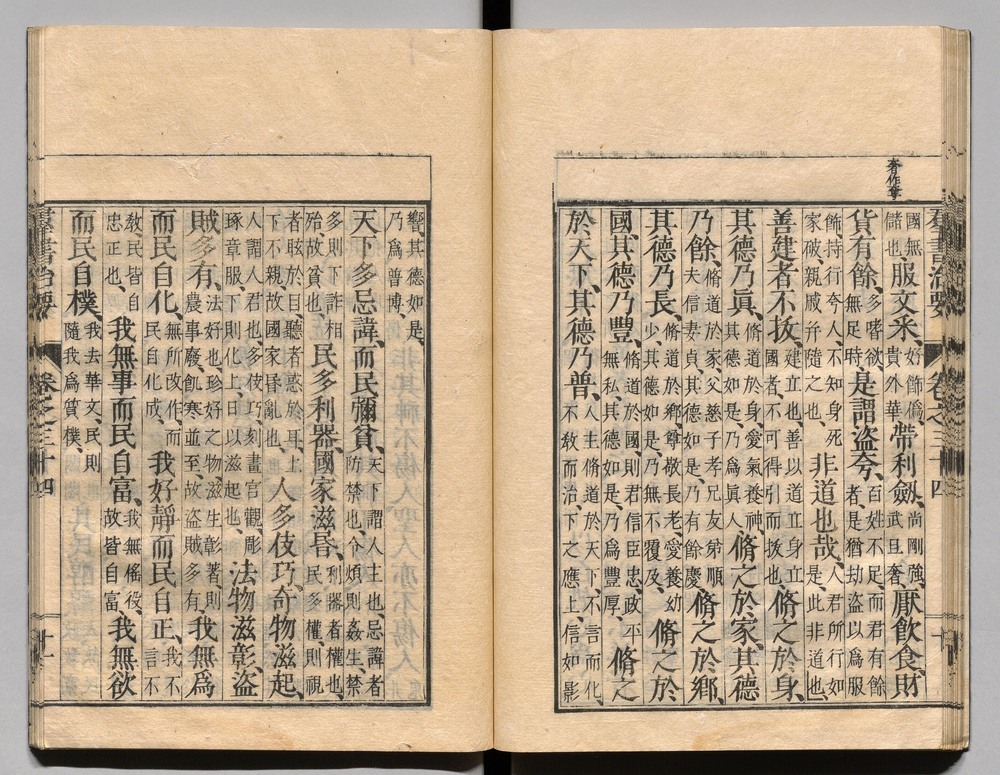 奢作
國無儲也、服文采、好飾僞、貴外華、帶利劔、尚剛強、武且奢、厭飲食、財
貨有餘、多嗜欲、無足時、是謂盜夸、百姓不足、而君有餘者、是猶劫盜以爲服
飾、持行夸人、不知身死家破、親戚幷隨之也、非道也哉、人君所行如是、此非道也、
善建者不拔、建立也、善以道立身立國者、不可得引而拔也、脩之於身、
其德乃眞、脩道於身、愛氣養神、其德如是、乃爲眞人、脩之於家、其德
乃餘、脩道於家、父慈子孝、兄友弟順、夫信妻貞、其德如是、乃有餘慶脩之於鄉、
其德乃長、脩道於鄉、尊敬長老、愛養幼少、其德如是、乃無不覆及、脩之於
國、其德乃豐、脩道於國、則君信臣忠、政平無私、其德如是、乃爲豐厚、脩之
於天下、其德乃普、人主脩道於天下、不言而化、不敎而治、下之應上、信如影
響、其德如是、乃爲普博、
天下多忌諱、而民彌貧、天下謂人主也、忌諱者防禁也、令煩則姦生、禁
多則下詐相殆、故貧也、民多利器、國家滋昏、利器者權也、民多權則視
者眩於目、聽者惑於耳、上下不親、故國家昏亂也、人多伎巧、奇物滋起、
人謂人君也、多伎巧、刻畫宮觀、彫琢章服、下則化上、日以滋起也、法物滋彰、盜
賊多有、法好也、珍好之物滋生彰著、則農事廢、飢寒並至、故盜賊多有、我無爲
而民自化、無所改作、而民自化成、我好靜而民自正、我不言不
敎、民皆自忠正也、我無事而民自富、我無傜役、故皆自富、我無欲
而民自樸、我去華文、民則隨我爲質樸、
羣書治要 卷之三十四 十一